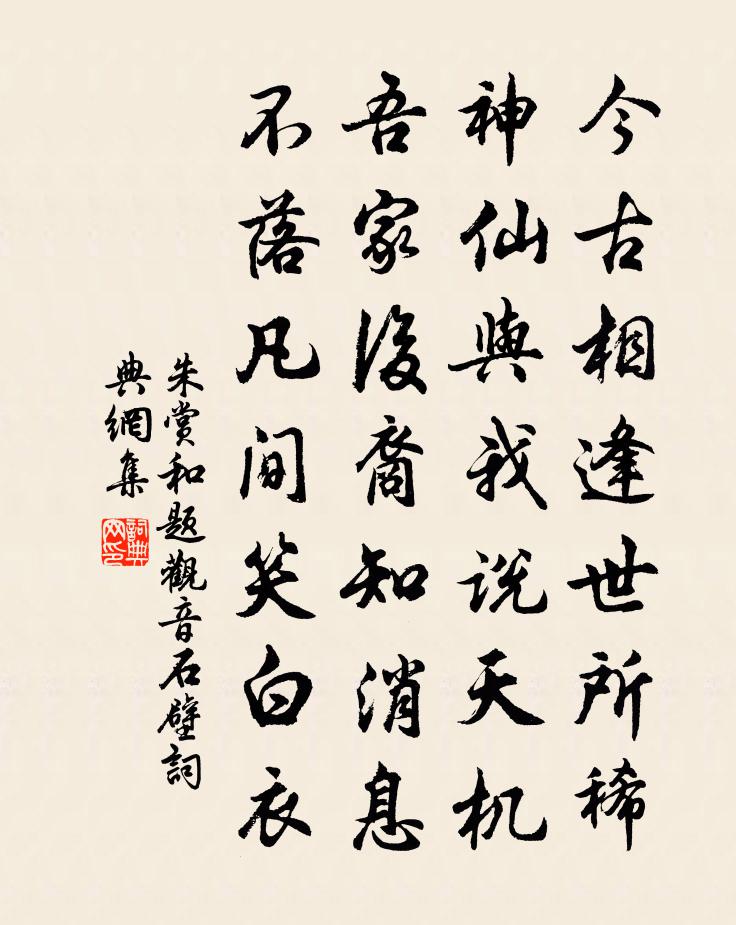 今古相逢世所稀
神仙與我説天机
吾家後裔知消息
不落凡间笑白衣
朱赏和题觀音石壁詞
典網集
詞典
网印